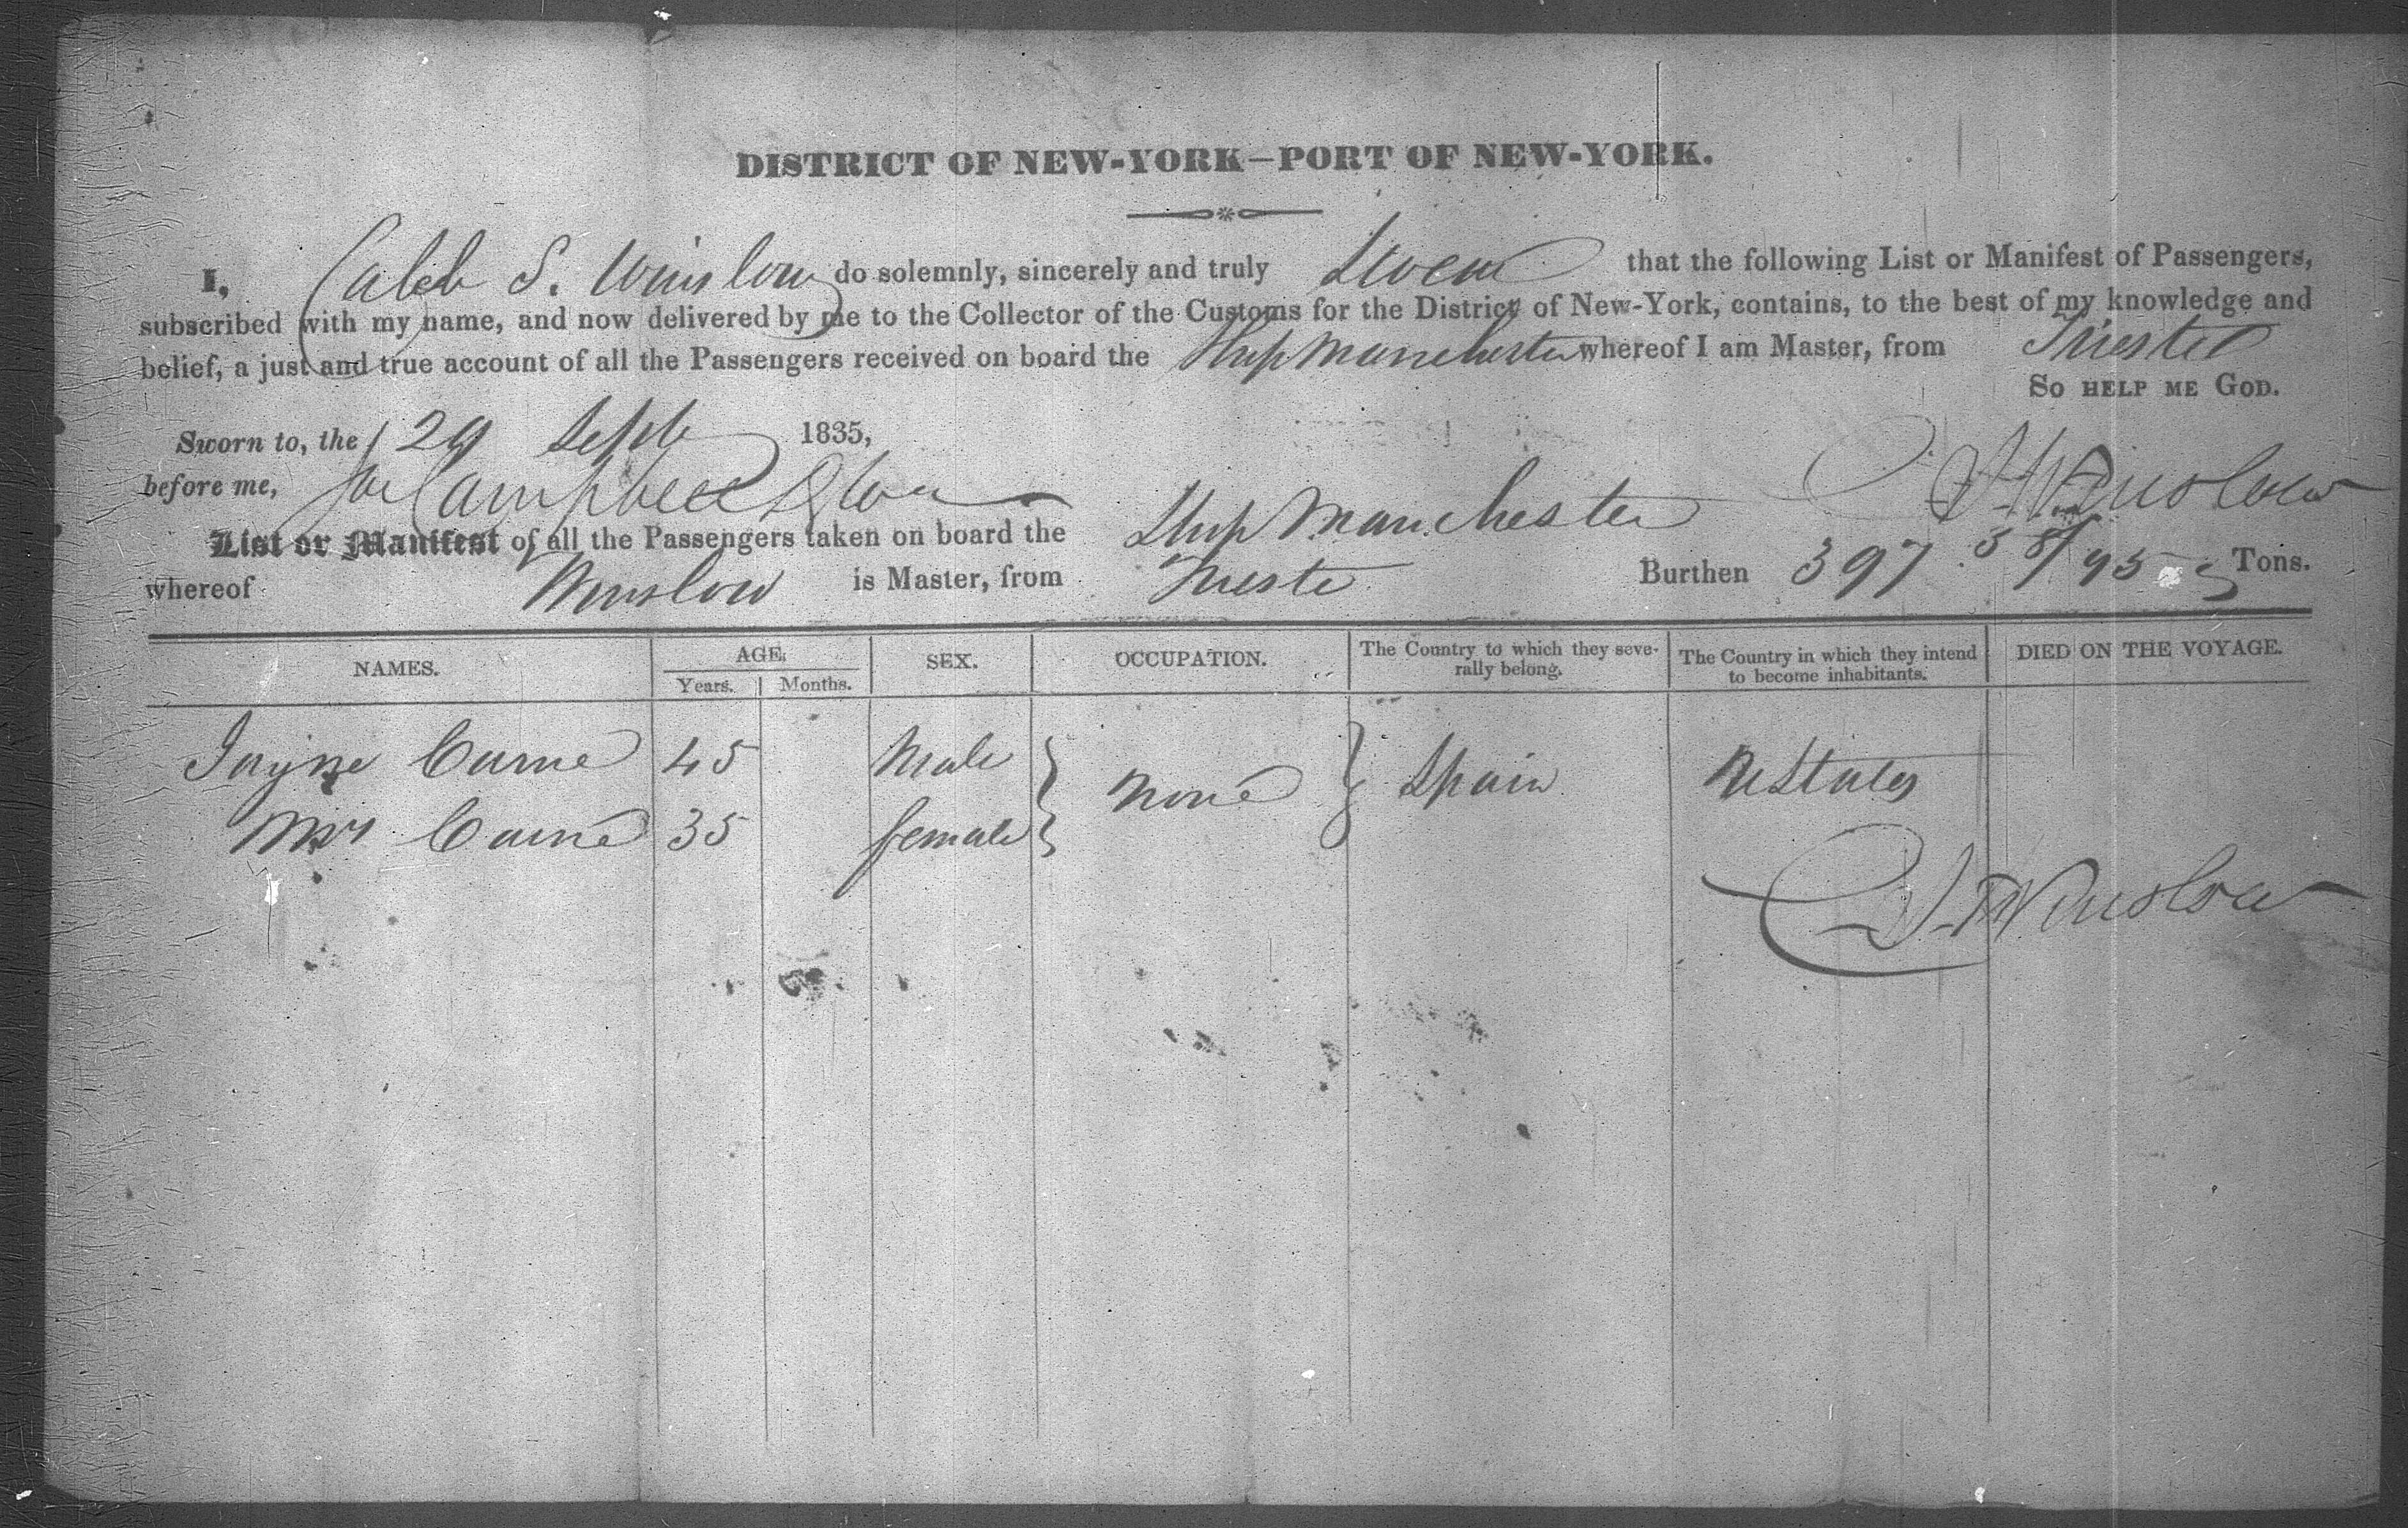 DISTRICT OF NEW-YORK—PORT OF NEW-YORK.
I, Caleb S. Winslow do solemnly, sincerely and truly Swear that the following List or Manifest of Passengers,
subscribed with my name, and now delivered by me to the Collector of the Customs for the District of New-York, contains, to the best of my knowledge and
belief, a just and true account of all the Passengers received on board the Ship Manchester whereof I am Master, from Trieste
So HELP ME GOD.
Sworn to, the 29 Sept 1835,
before me, Campbell Winslow
List or Manifest of all the Passengers taken on board the Ship Manchester
whereof Winslow is Master, from Trieste Burthen 397 38/95 Tons.
NAMES. AGE. SEX. OCCUPATION. The Country to which they seve- The Country in which they intend DIED ON THE VOYAGE.
Years. Months. rally belong. to become inhabitants.
Jayne Carne 45 Male none Spain U States
Mrs Carne 35 female
Winslow